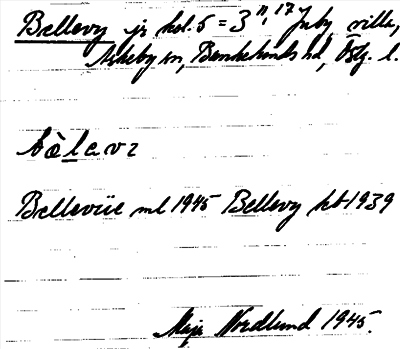 Bellevy jr kol. 5 = 3 11, 17 Juby, villa,
Askeby sn, Bankekinds hd, Östg. l.
bὲlavɩ
Bellevüe ml 1945 Bellevy kb 1939
Maja Nordlund 1945.